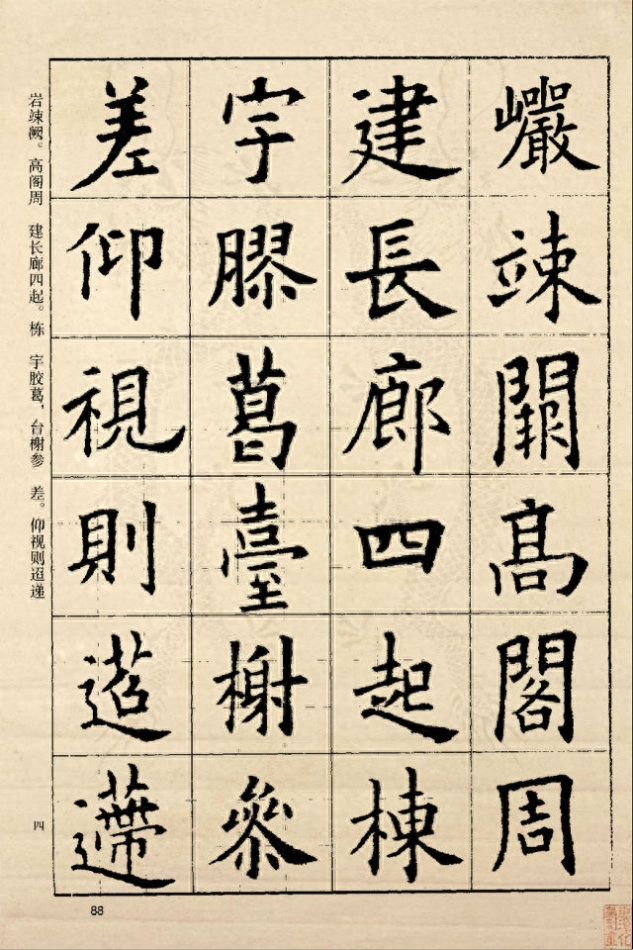 巖竦闕高閣周
建長廊四起棟
宇膠葛臺榭參
差仰視則迢遰
岩竦阙。高阁周 建长廊四起。栋 宇胶葛，台榭参 差。仰视则迢递
四
88